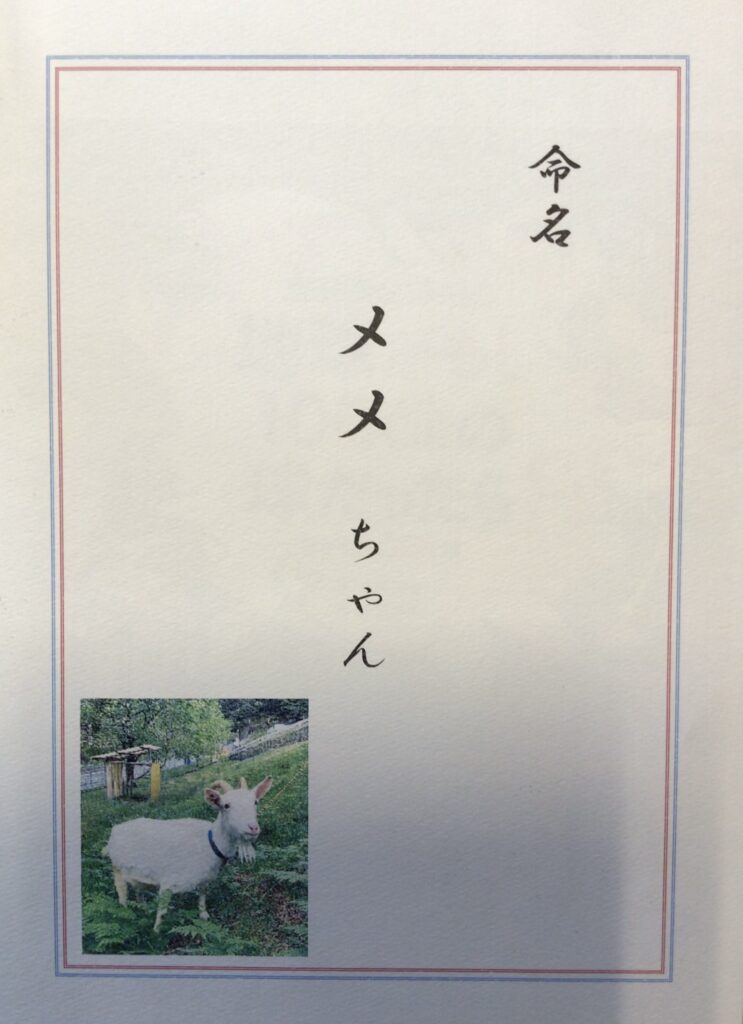 命名
メメ ちゃん